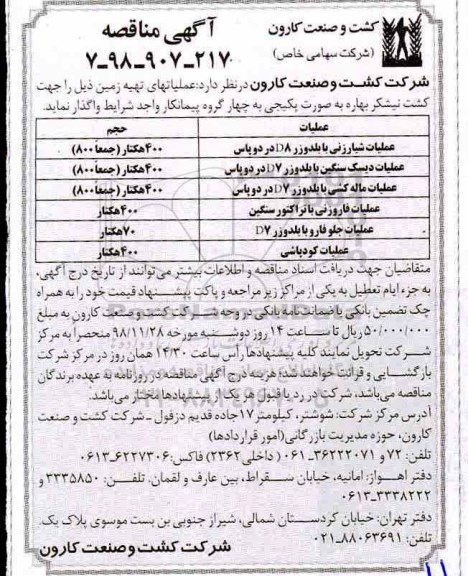 کشت و صنعت کارون
(شرکت سهامی خاص)
آگهی مناقصه
۷-۹۸-۹۰۷-۲۱۷
شرکت کشت و صنعت کارون درنظر دارد: عملیاتهای تهیه زمین ذیل را جهت
کشت نیشکر بهاره به صورت پکیجی به چهار گروه پیمانکار واجد شرایط واگذار نماید.
عملیات حجم
عملیات شیارزنی با بلدوزر D۸ در دو پاس ۴۰۰هکتار (جمعاً ۸۰۰)
عملیات دیسک سنگین با بلدوزر D۷ در دو پاس ۴۰۰هکتار (جمعاً ۸۰۰)
عملیات ماله کشی با بلدوزر D۷ در دو پاس ۴۰۰هکتار (جمعاً ۸۰۰)
عملیات فاروزنی با تراکتور سنگین ۴۰۰هکتار
عملیات جلو فارو با بلدوزر D۷ ۷۰هکتار
عملیات کودپاشی ۴۰۰هکتار
متقاضیان جهت دریافت اسناد مناقصه و اطلاعات بیشتر می توانند از تاریخ درج آگهی،
به جزء ایام تعطیل به یکی از مراکز زیر مراجعه و پاکت پیشنهاد قیمت خود را به همراه
چک تضمین بانکی یا ضمانت نامه بانکی در وجه شرکت کشت و صنعت کارون به مبلغ
۵۰/۰۰۰/۰۰۰ ریال تا ساعت ۱۴ روز دوشنبه مورخه ۹۸/۱۱/۲۸ منحصراً به مرکز
شرکت تحویل نمایند کلیه پیشنهادها رأس ساعت ۱۴/۳۰ همان روز در مرکز شرکت
بازگشایی و قرائت خواهند شد؛ هزینه درج آگهی مناقصه در روزنامه به عهده برندگان
مناقصه می‌باشد، شرکت در رد یا قبول هر یک از پیشنهادها مختار می‌باشد.
آدرس مرکز شرکت: شوشتر، کیلومتر ۱۷ جاده قدیم دزفول - شرکت کشت و صنعت
کارون، حوزه مدیریت بازرگانی (امور قراردادها)
تلفن: ۷۲ و ۳۶۲۲۲۰۷۱-۰۶۱ (داخلی ۲۳۶۲) فاکس: ۶۲۲۷۳۰۶-۰۶۱۳
دفتر اهواز: امانیه، خیابان سقراط، بین عارف و لقمان. تلفن: ۳۳۳۵۸۵۰ و
۳۳۳۸۲۲۲-۰۶۱۳
دفتر تهران: خیابان کردستان شمالی، شیراز جنوبی بن بست موسوی پلاک یک.
تلفن: ۸۸۰۶۳۶۹۱-۰۲۱
شرکت کشت و صنعت کارون